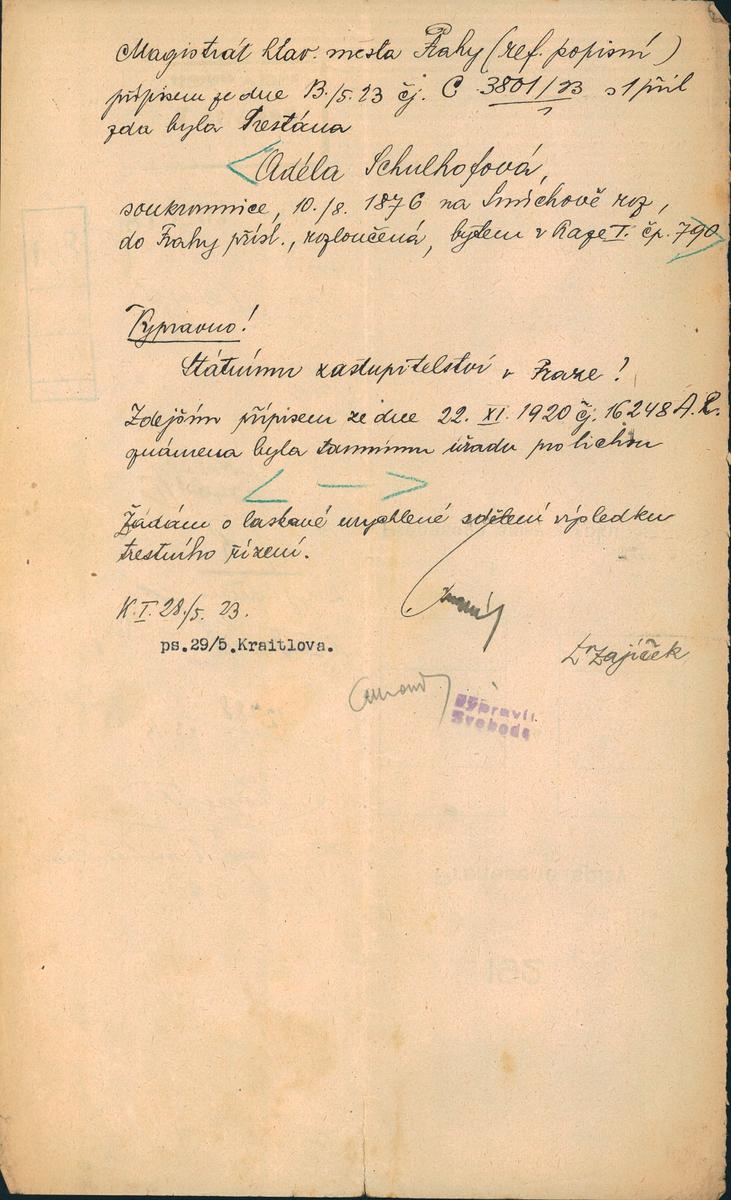 Magistrát hlav. města Prahy (ref. popisní)
přípisem ze dne 13./5.23 čj. C 3801/23 s 1 příl
zda byla trestána
Adéla Schulhofová,
soukromnice, 10./8. 1876 na Smíchově roz,
do Prahy přísl., rozloučená, bytem v Praze I. čp. 790
Vypravno!
Státnímu zastupitelství v Praze!
Zdejším přípisem ze dne 22. XI. 1920 čj. 16248 A.R.
známena byla tamnímu úřadu pro lichvu
Žádám o laskavé urychlené sdělení výsledku
trestního řízení.
K.I. 28./5. 23.
ps.29/5.Kraitlova.
Dr Zajíček
Vypravil:
Svoboda